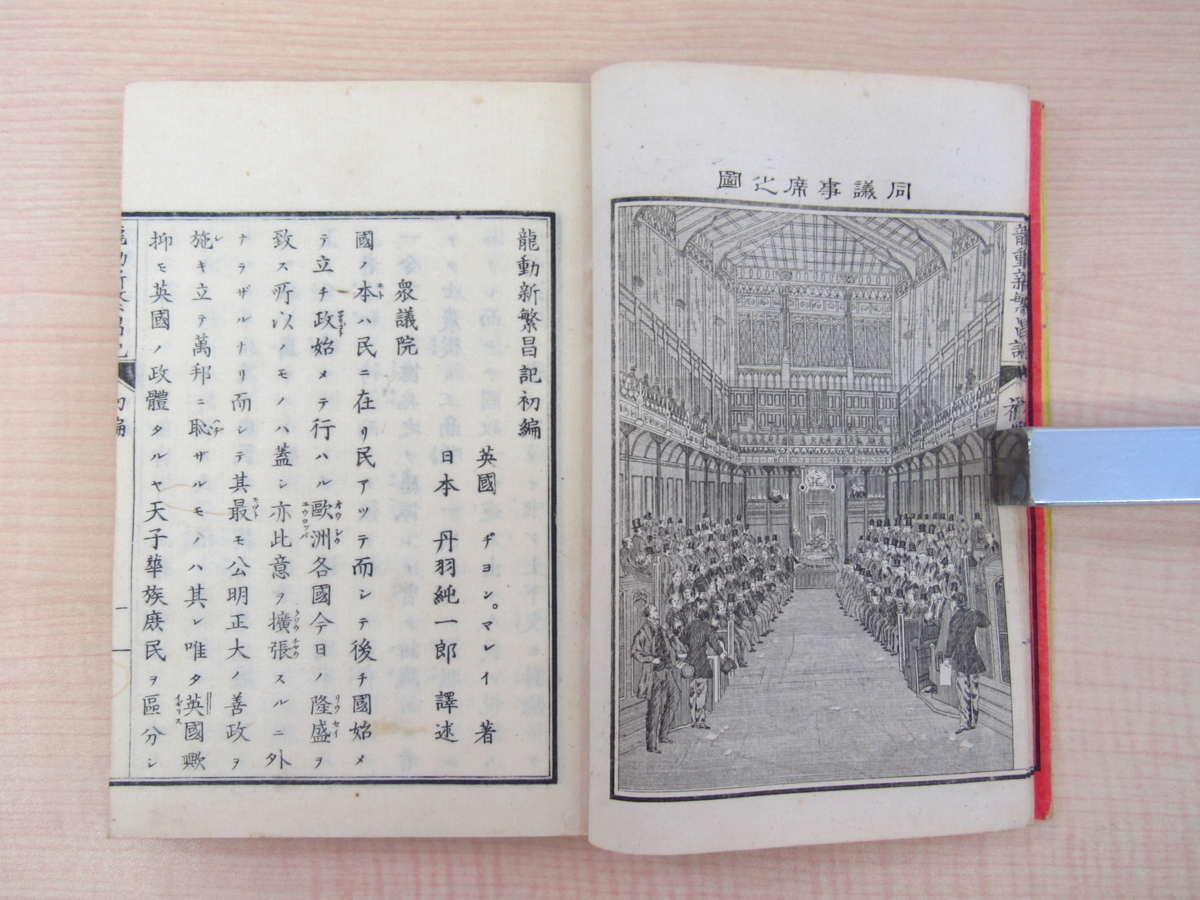 同議事席之圖
龍動新繁昌記初編
英國 ヂヨン。マレイ 著
日本 丹羽純一郎 譯述
衆議院
國ノ本ハ民ニ在リ民アツテ而シテ後チ國始メ
テ立チ政始メテ行ハル歐洲各國今日ノ隆盛ヲ
致ス所以ノモノハ蓋シ亦此意ヲ擴張スルニ外
ナラザルナリ而シテ其最モ公明正大ノ善政ヲ
施キ立テ萬邦ニ恥ザルモノハ其レ唯タ英國歟
抑モ英國ノ政體タルヤ天子華族庶民ヲ區分シ
初編